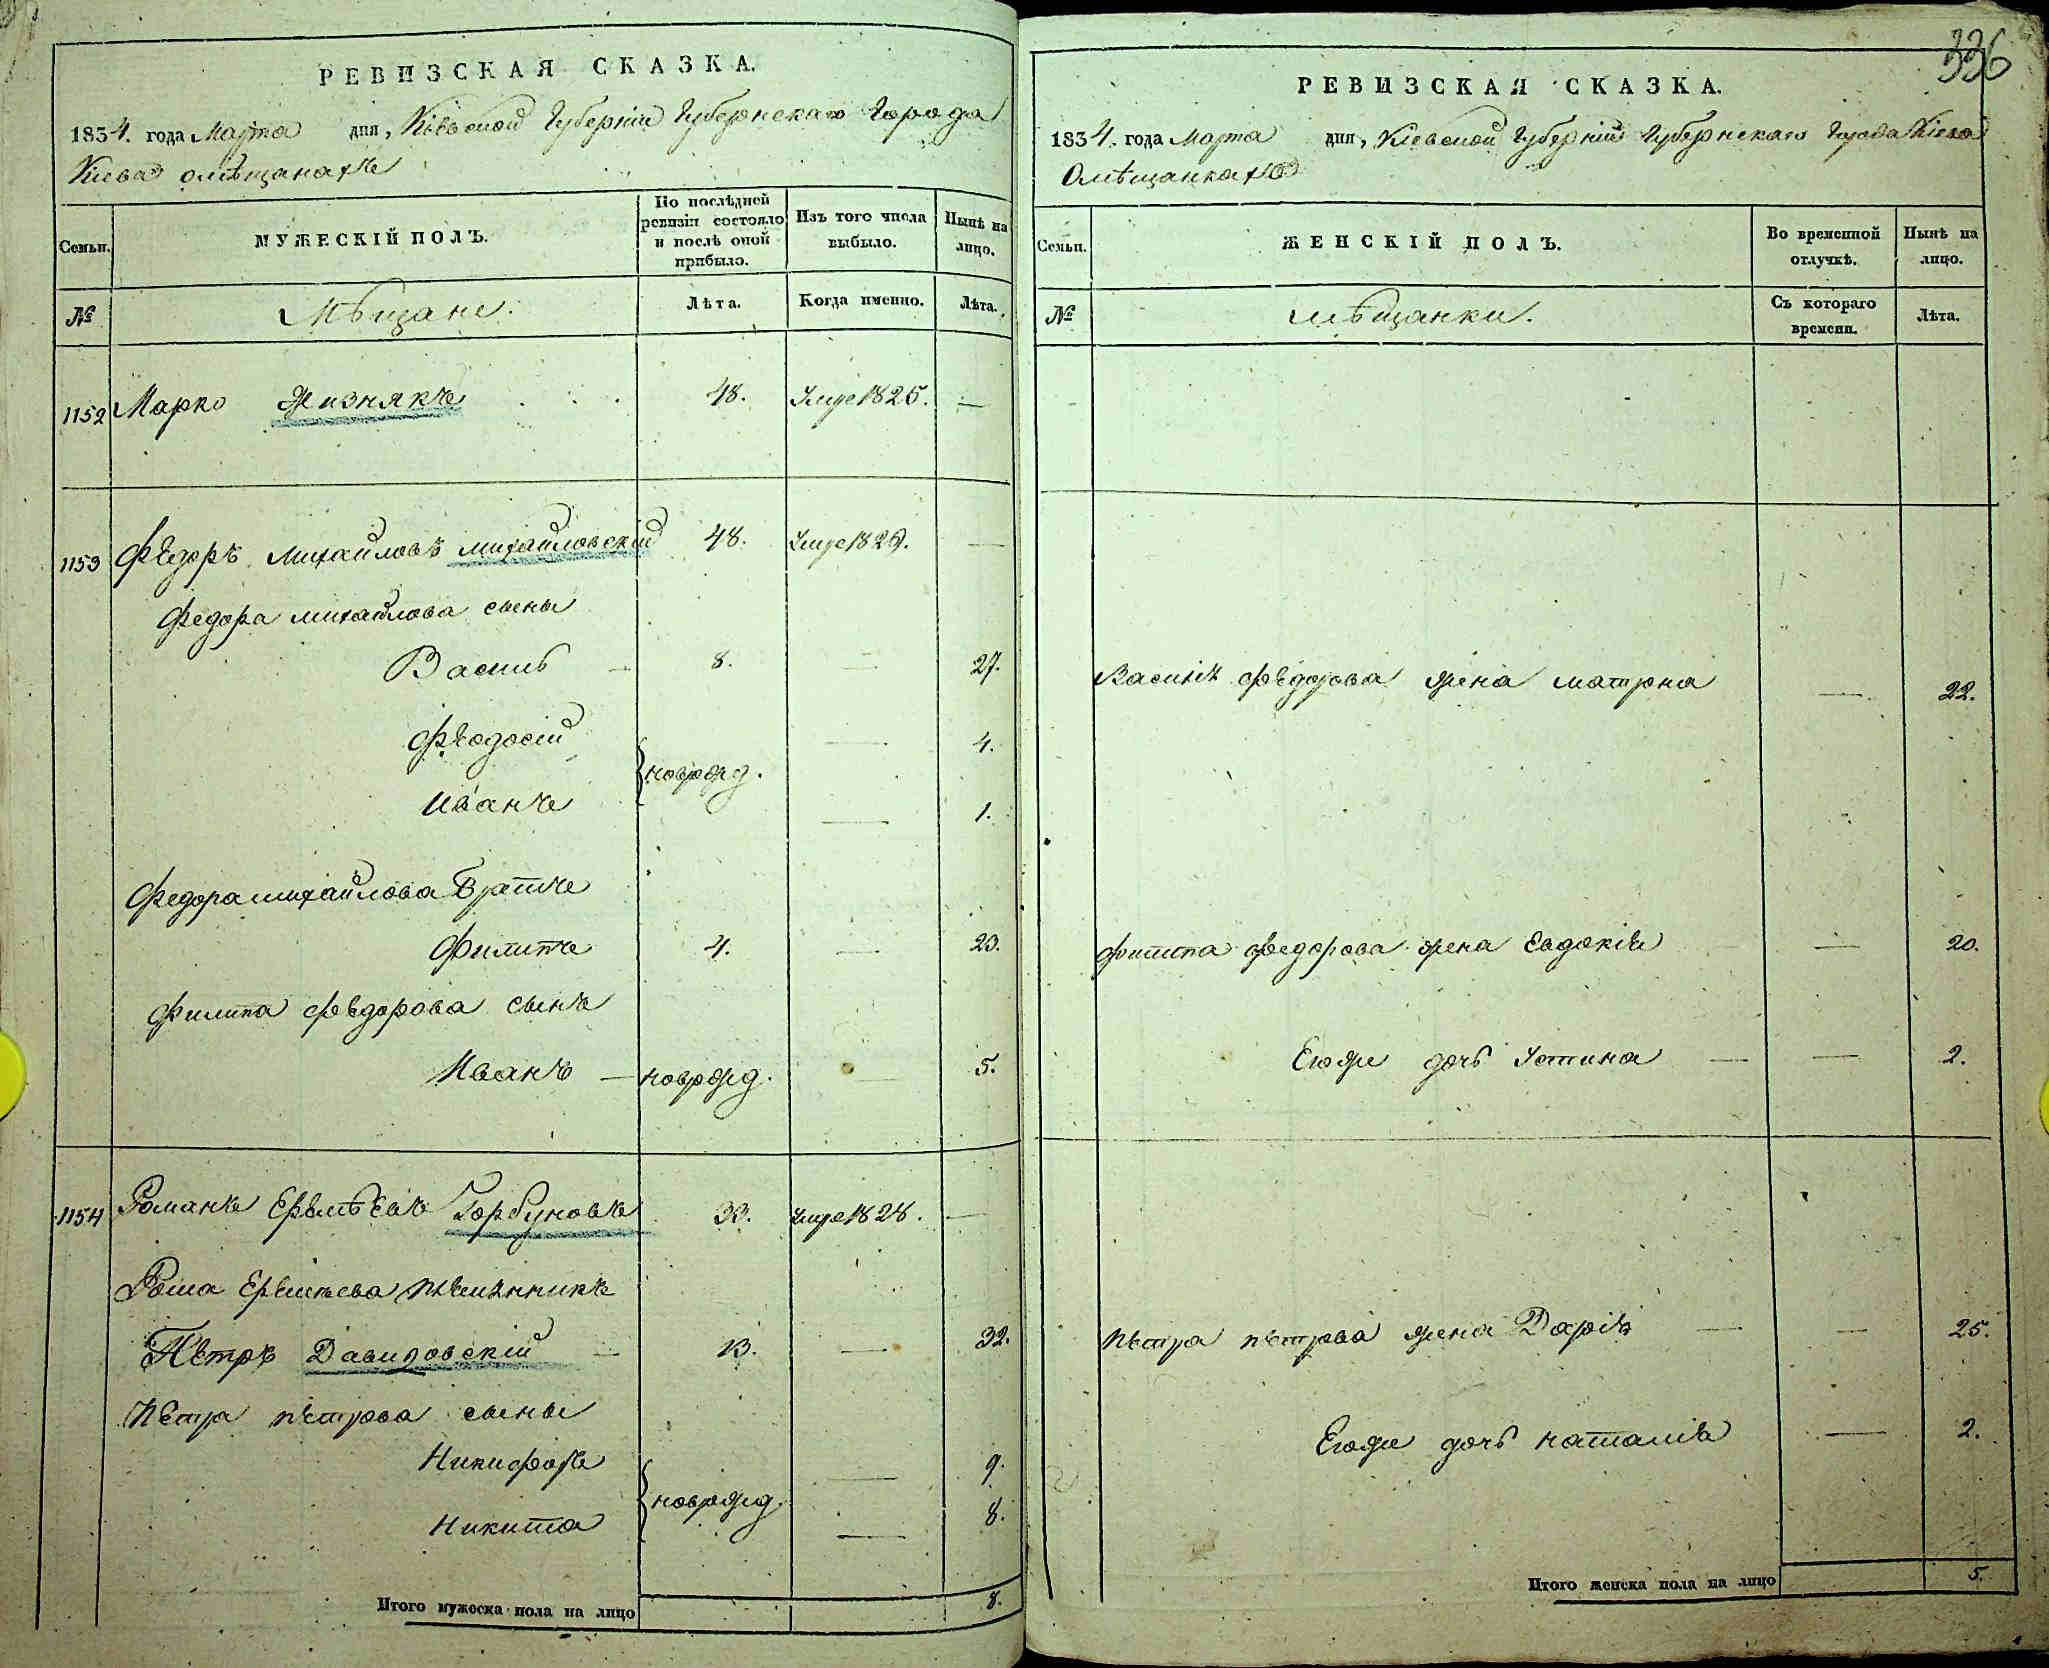 РЕВИЗСКАЯ СКАЗКА.
1834. года Марта дня, Кіевской Губерніи Губернскаго Города
Кіева омѣщанахъ
Семьи.
МУЖЕСКІЙ ПОЛЪ.
По послѣдней ревизіи состояло и послѣ оной прибыло.
Изъ того числа выбыло.
Нынѣ на лицо.
№
Мѣщане.
Лѣта.
Когда именно.
Лѣта.
1152 Марко Жизнякъ 48. Умре 1825. —
1153 Федоръ Михайловъ Михайловскій 48. Умре 1829. —
Федора Михайлова сыны
Василь — 8. — 27.
Феодосій — 4.
новрожд.
Иванъ — 1.
Федора Михайлова Братъ
Филипъ 4. — 23.
Филипа Федорова сынъ
Иванъ — новрожд. — 5.
1154 Романъ Еремѣевъ Горбуновъ 33. Умре 1828. —
Рома Еремѣева племянникъ
Петръ Давидовскій — 13. — 32.
Петра Петрова сыны
Никифоръ — 9.
новрожд.
Никита — 8.
Итого мужеска пола на лицо 8.
336
РЕВИЗСКАЯ СКАЗКА.
1834. года Марта дня, Кіевской Губерніи Губернскаго Города Кіева
Омѣщанкахъ
Семьи.
ЖЕНСКІЙ ПОЛЪ.
Во временной отлучкѣ.
Нынѣ на лицо.
№
Мѣщанки.
Съ котораго времени.
Лѣта.
Василія Федорова жена Матрона — 22.
Филипа Федорова жена Евдокія — 20.
Егоже дочь Устина — — 2.
Петра Петрова жена Дарія — — 25.
Егоже дочь Наталія — 2.
Итого женска пола на лицо 5.